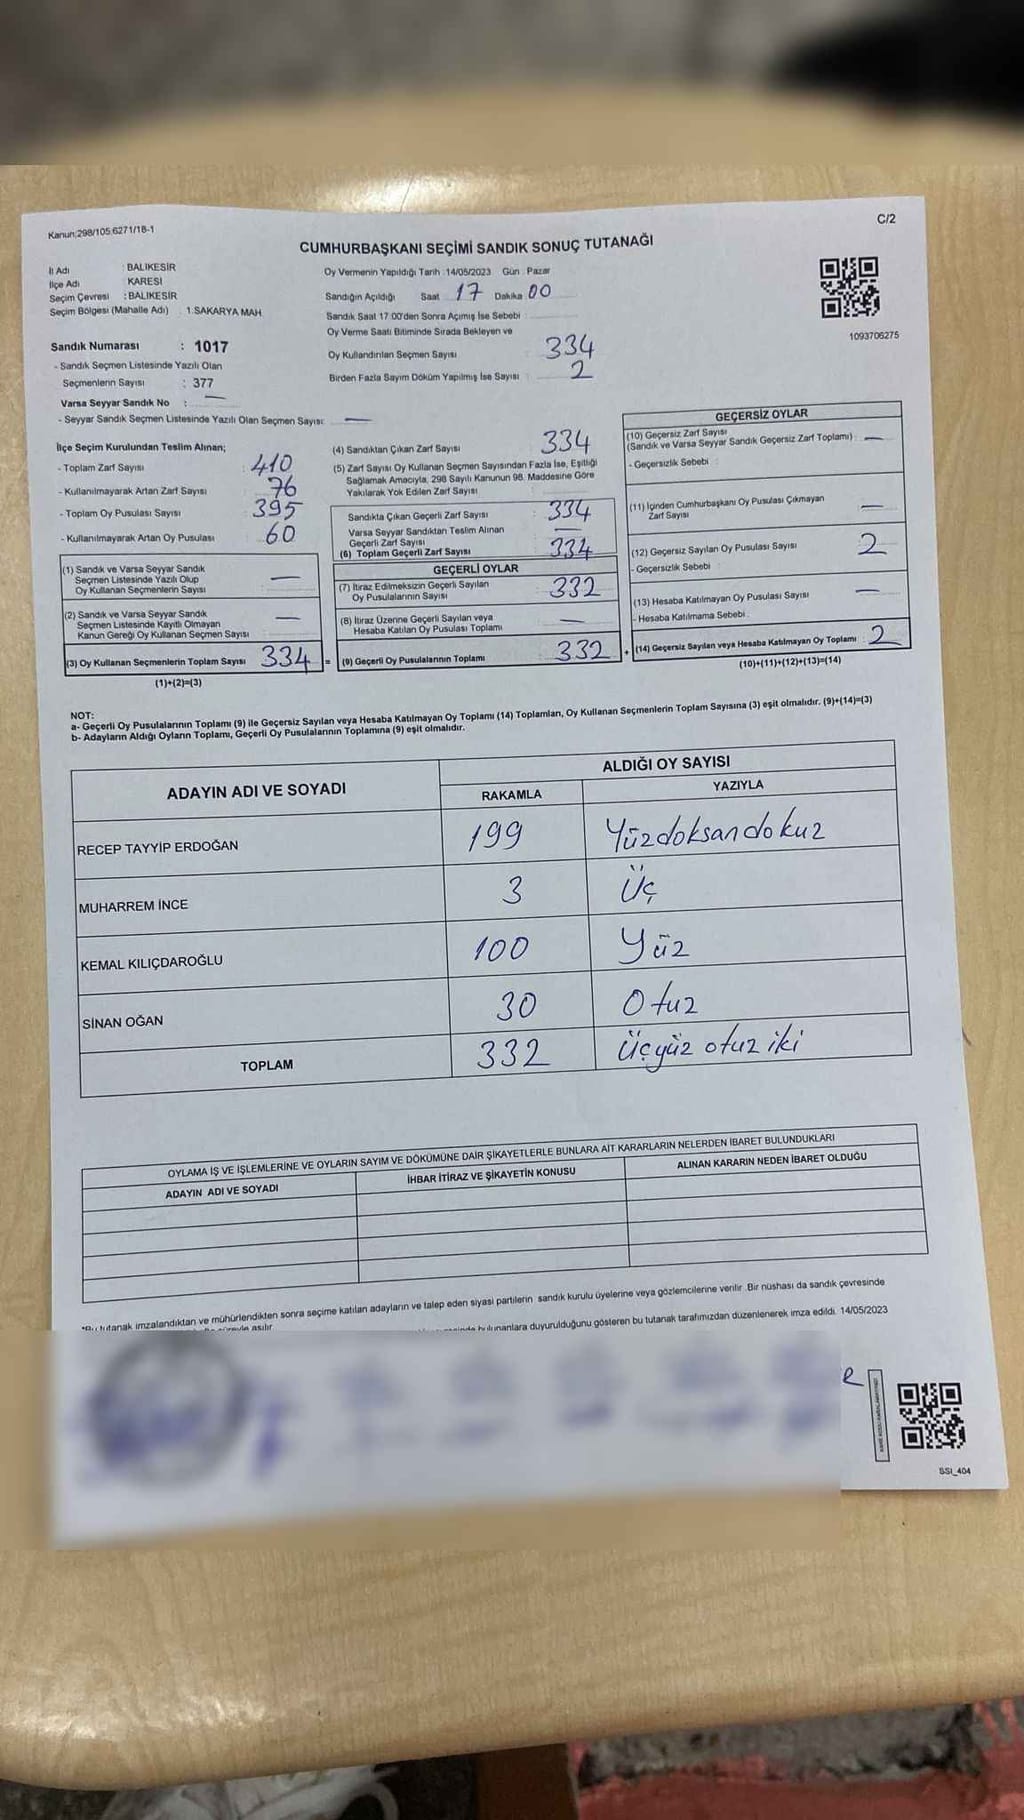 Kanun:298/105,6271/18-1
C/2
CUMHURBAŞKANI SEÇİMİ SANDIK SONUÇ TUTANAĞI
İl Adı : BALIKESİR
İlçe Adı KARESİ
Seçim Çevresi : BALIKESİR
Seçim Bölgesi (Mahalle Adı) 1.SAKARYA MAH.
Sandık Numarası : 1017
- Sandık Seçmen Listesinde Yazılı Olan
Seçmenlerin Sayısı : 377
Varsa Seyyar Sandık No : —
- Seyyar Sandık Seçmen Listesinde Yazılı Olan Seçmen Sayısı: —
Oy Vermenin Yapıldığı Tarih :14/05/2023 Gün : Pazar
Sandığın Açıldığı Saat 17 Dakika 00
Sandık Saat 17:00'den Sonra Açımış İse Sebebi :
Oy Verme Saati Bitiminde Sırada Bekleyen ve
Oy Kullandırılan Seçmen Sayısı 334
Birden Fazla Sayım Döküm Yapılmış İse Sayısı : 2
1093706275
İlçe Seçim Kurulundan Teslim Alınan;
- Toplam Zarf Sayısı : 410
- Kullanılmayarak Artan Zarf Sayısı : 76
- Toplam Oy Pusulası Sayısı : 395
- Kullanılmayarak Artan Oy Pusulası : 60
(1) Sandık ve Varsa Seyyar Sandık
Seçmen Listesinde Yazılı Olup
Oy Kullanan Seçmenlerin Sayısı —
(2) Sandık ve Varsa Seyyar Sandık
Seçmen Listesinde Kayıtlı Olmayan
Kanun Gereği Oy Kullanan Seçmen Sayısı —
(3) Oy Kullanan Seçmenlerin Toplam Sayısı 334 =
(1)+(2)=(3)
(4) Sandıktan Çıkan Zarf Sayısı 334
(5) Zarf Sayısı Oy Kullanan Seçmen Sayısından Fazla İse, Eşitliği
Sağlamak Amacıyla, 298 Sayılı Kanunun 98. Maddesine Göre
Yakılarak Yok Edilen Zarf Sayısı :
Sandıkta Çıkan Geçerli Zarf Sayısı : 334
Varsa Seyyar Sandıktan Teslim Alınan
Geçerli Zarf Sayısı —
(6) Toplam Geçerli Zarf Sayısı 334
GEÇERLİ OYLAR
(7) İtiraz Edilmeksizin Geçerli Sayılan
Oy Pusulalarının Sayısı 332
(8) İtiraz Üzerine Geçerli Sayılan veya
Hesaba Katılan Oy Pusulası Toplamı —
(9) Geçerli Oy Pusulalarının Toplamı 332 +
GEÇERSİZ OYLAR
(10) Geçersiz Zarf Sayısı
(Sandık ve Varsa Seyyar Sandık Geçersiz Zarf Toplamı) : —
- Geçersizlik Sebebi :
(11) İçinden Cumhurbaşkanı Oy Pusulası Çıkmayan
Zarf Sayısı —
(12) Geçersiz Sayılan Oy Pusulası Sayısı : 2
- Geçersizlik Sebebi :
(13) Hesaba Katılmayan Oy Pusulası Sayısı : —
- Hesaba Katılmama Sebebi :
(14) Geçersiz Sayılan veya Hesaba Katılmayan Oy Toplamı : 2
(10)+(11)+(12)+(13)=(14)
NOT:
a- Geçerli Oy Pusulalarının Toplamı (9) ile Geçersiz Sayılan veya Hesaba Katılmayan Oy Toplamı (14) Toplamları, Oy Kullanan Seçmenlerin Toplam Sayısına (3) eşit olmalıdır. (9)+(14)=(3)
b- Adayların Aldığı Oyların Toplamı, Geçerli Oy Pusulalarının Toplamına (9) eşit olmalıdır.
ADAYIN ADI VE SOYADI
ALDIĞI OY SAYISI
RAKAMLA YAZIYLA
RECEP TAYYİP ERDOĞAN 199 Yüzdoksandokuz
MUHARREM İNCE 3 Üç
KEMAL KILIÇDAROĞLU 100 Yüz
SİNAN OĞAN 30 Otuz
TOPLAM 332 Üçyüz otuz iki
OYLAMA İŞ VE İŞLEMLERİNE VE OYLARIN SAYIM VE DÖKÜMÜNE DAİR ŞİKAYETLERLE BUNLARA AİT KARARLARIN NELERDEN İBARET BULUNDUKLARI
ADAYIN ADI VE SOYADI İHBAR İTİRAZ VE ŞİKAYETİN KONUSU ALINAN KARARIN NEDEN İBARET OLDUĞU
*Bu tutanak imzalandıktan ve mühürlendikten sonra seçime katılan adayların ve talep eden siyasi partilerin sandık kurulu üyelerine veya gözlemcilerine verilir. Bir nüshası da sandık çevresinde
bulunanlara duyurulduğunu gösteren bu tutanak tarafımızdan düzenlenerek imza edildi. 14/05/2023
SSI_404